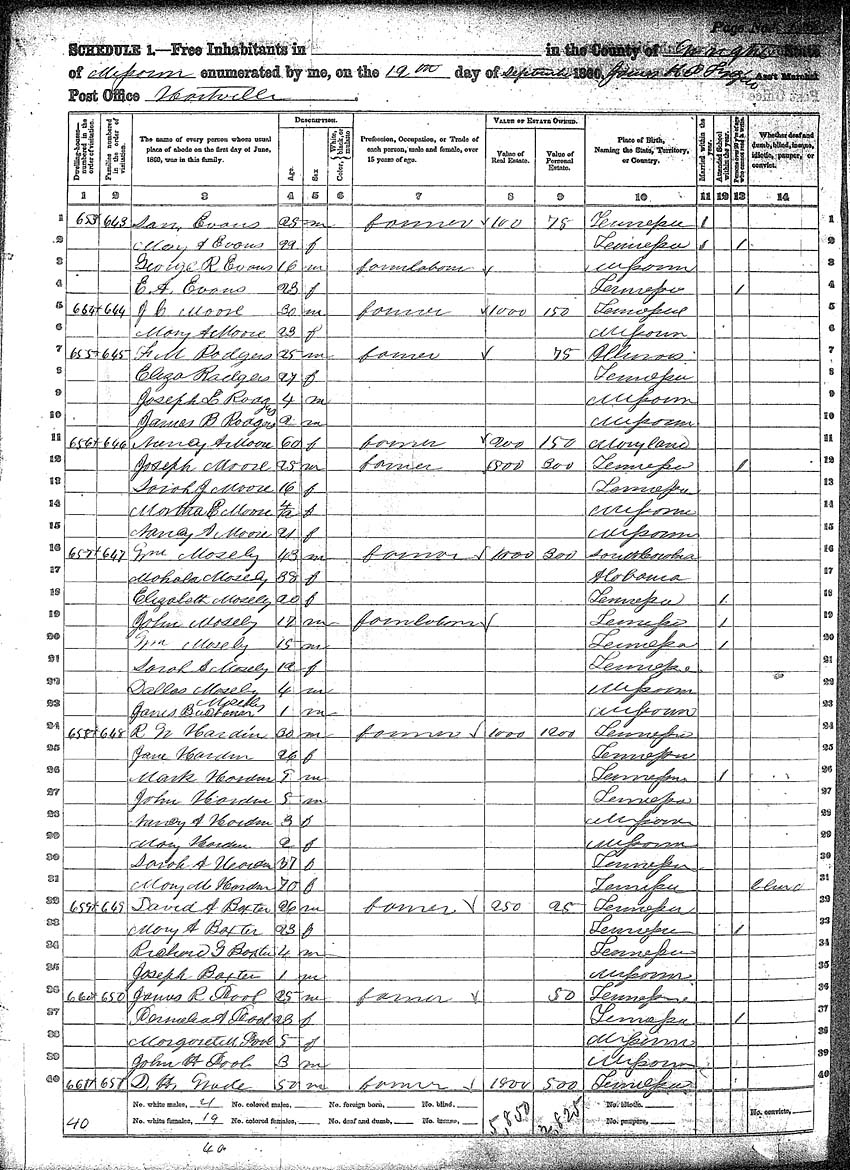 Page No.
SCHEDULE 1.—Free Inhabitants in in the County of Wright State
of Missouri enumerated by me, on the 19th day of September 1860. Ass't Marshal
Post Office Hartville
Dwelling-houses—numbered in the order of visitation.
Families numbered in the order of visitation.
The name of every person whose usual place of abode on the first day of June, 1860, was in this family.
DESCRIPTION.
Age.
Sex
Color, { White, black, or mulatto
Profession, Occupation, or Trade of each person, male and female, over 15 years of age.
VALUE OF ESTATE OWNED.
Value of Real Estate.
Value of Personal Estate.
Place of Birth, Naming the State, Territory, or Country.
Married within the year.
Attended School within the year.
Whether deaf and dumb, blind, insane, idiotic, pauper, or convict.
1 2 3 4 5 6 7 8 9 10 11 12 13 14
1 653 643 Evans 25 m farmer 100 75 Tennessee 1 1
2 Mary A Evans 22 f Tennessee 1 1 2
3 George R Evans 16 m farm laborer Missouri 3
4 E. A. Evans 23 f Tennessee 1 4
5 654 644 J Moore 30 m farmer 1000 150 Tennessee 5
6 Mary A Moore 23 f Missouri 6
7 655 645 Rodgers 25 m farmer 75 Illinois 7
8 Eliza Rodgers 27 f Tennessee 8
9 Joseph E Rodgers 4 m Missouri 9
10 James B Rodgers 2 m Missouri 10
11 656 646 Nancy A Moore 60 f farmer 200 150 Maryland 11
12 Joseph Moore 25 m farmer 1500 300 Tennessee 1 12
13 Sarah J Moore 16 f Tennessee 13
14 Martha E Moore f Missouri 14
15 Nancy Moore 21 f Missouri 15
16 657 647 Wm Mosely 43 m farmer 1000 300 South Carolina 16
17 Mahala Mosely 38 f Alabama 17
18 Elizabeth Mosely 20 f Tennessee 1 18
19 John Mosely 17 m farm laborer Tennessee 1 19
20 Wm Mosely 15 m Tennessee 1 20
21 Sarah Mosely 12 f Tennessee 21
22 Dallas Mosely 4 m Missouri 22
23 James Buchanan Mosely 1 m Missouri 23
24 658 648 R Hardin 30 m farmer 1000 1200 Tennessee 24
25 Jane Hardin 26 f Tennessee 25
26 Mark Hardin m Tennessee 1 26
27 John Hardin 5 m Tennessee 27
28 Nancy A Hardin 3 f Missouri 28
29 Mary Hardin 2 f Missouri 29
30 Sarah A Hardin 37 f Tennessee 30
31 Mary M Hardin 70 f Tennessee blind 31
32 659 649 David A Baxter 26 m farmer 250 25 Tennessee 32
33 Mary A Baxter 23 f Tennessee 1 33
34 Richard G Baxter 4 m Tennessee 34
35 Joseph Baxter 1 m Missouri 35
36 660 650 James R Pool 25 m farmer 50 Tennessee 36
37 Permelia A Pool 23 f Tennessee 1 37
38 Margaret M Pool 5 f Missouri 38
39 John H Pool 3 m Missouri 39
40 661 651 D. H. 50 m farmer 1800 500 Tennessee 40
No. white males, 21 No. colored males, No. foreign born, No. blind, No. idiotic,
No. white females, 19 No. colored females, No. deaf and dumb, No. insane, No. paupers, No. convicts,
40 5,850 2,825
40